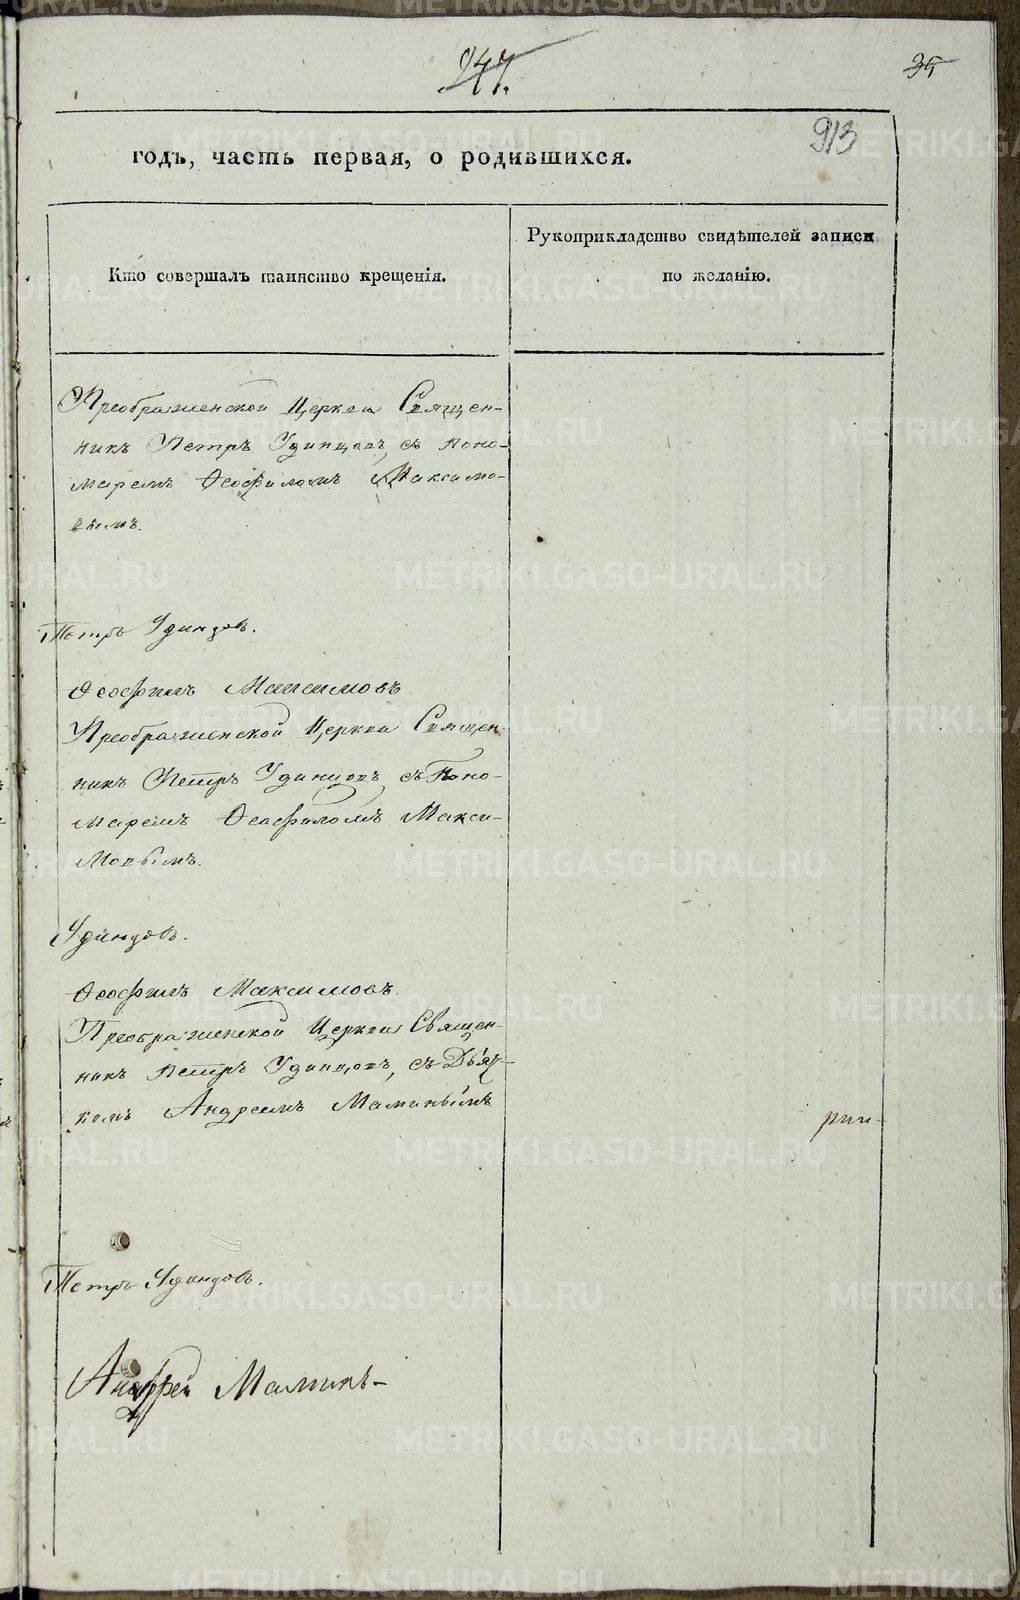 247.
35
913
годъ, часть первая, о родившихся.
Кто совершалъ таинство крещенія.
Рукоприкладство свидѣтелей записи
по желанію.
Преображенской Церкви Священ-
никъ Петръ Удинцовъ, съ поно-
маремъ Ѳеофиломъ Максимо-
вымъ.
Петръ Удинцовъ.
Ѳеофилъ Максимовъ
Преображенской Церкви Священ-
никъ Петръ Удинцовъ, съ Поно-
маремъ Ѳеофиломъ Макси-
мовымъ.
Удинцовъ.
Ѳеофилъ Максимовъ
Преображенской Церкви Священ-
никъ Петръ Удинцовъ, съ Дьяч-
комъ Андреемъ Маминымъ
Петръ Удинцовъ.
Андрей Маминъ
METRIKI.GASO-URAL.RU